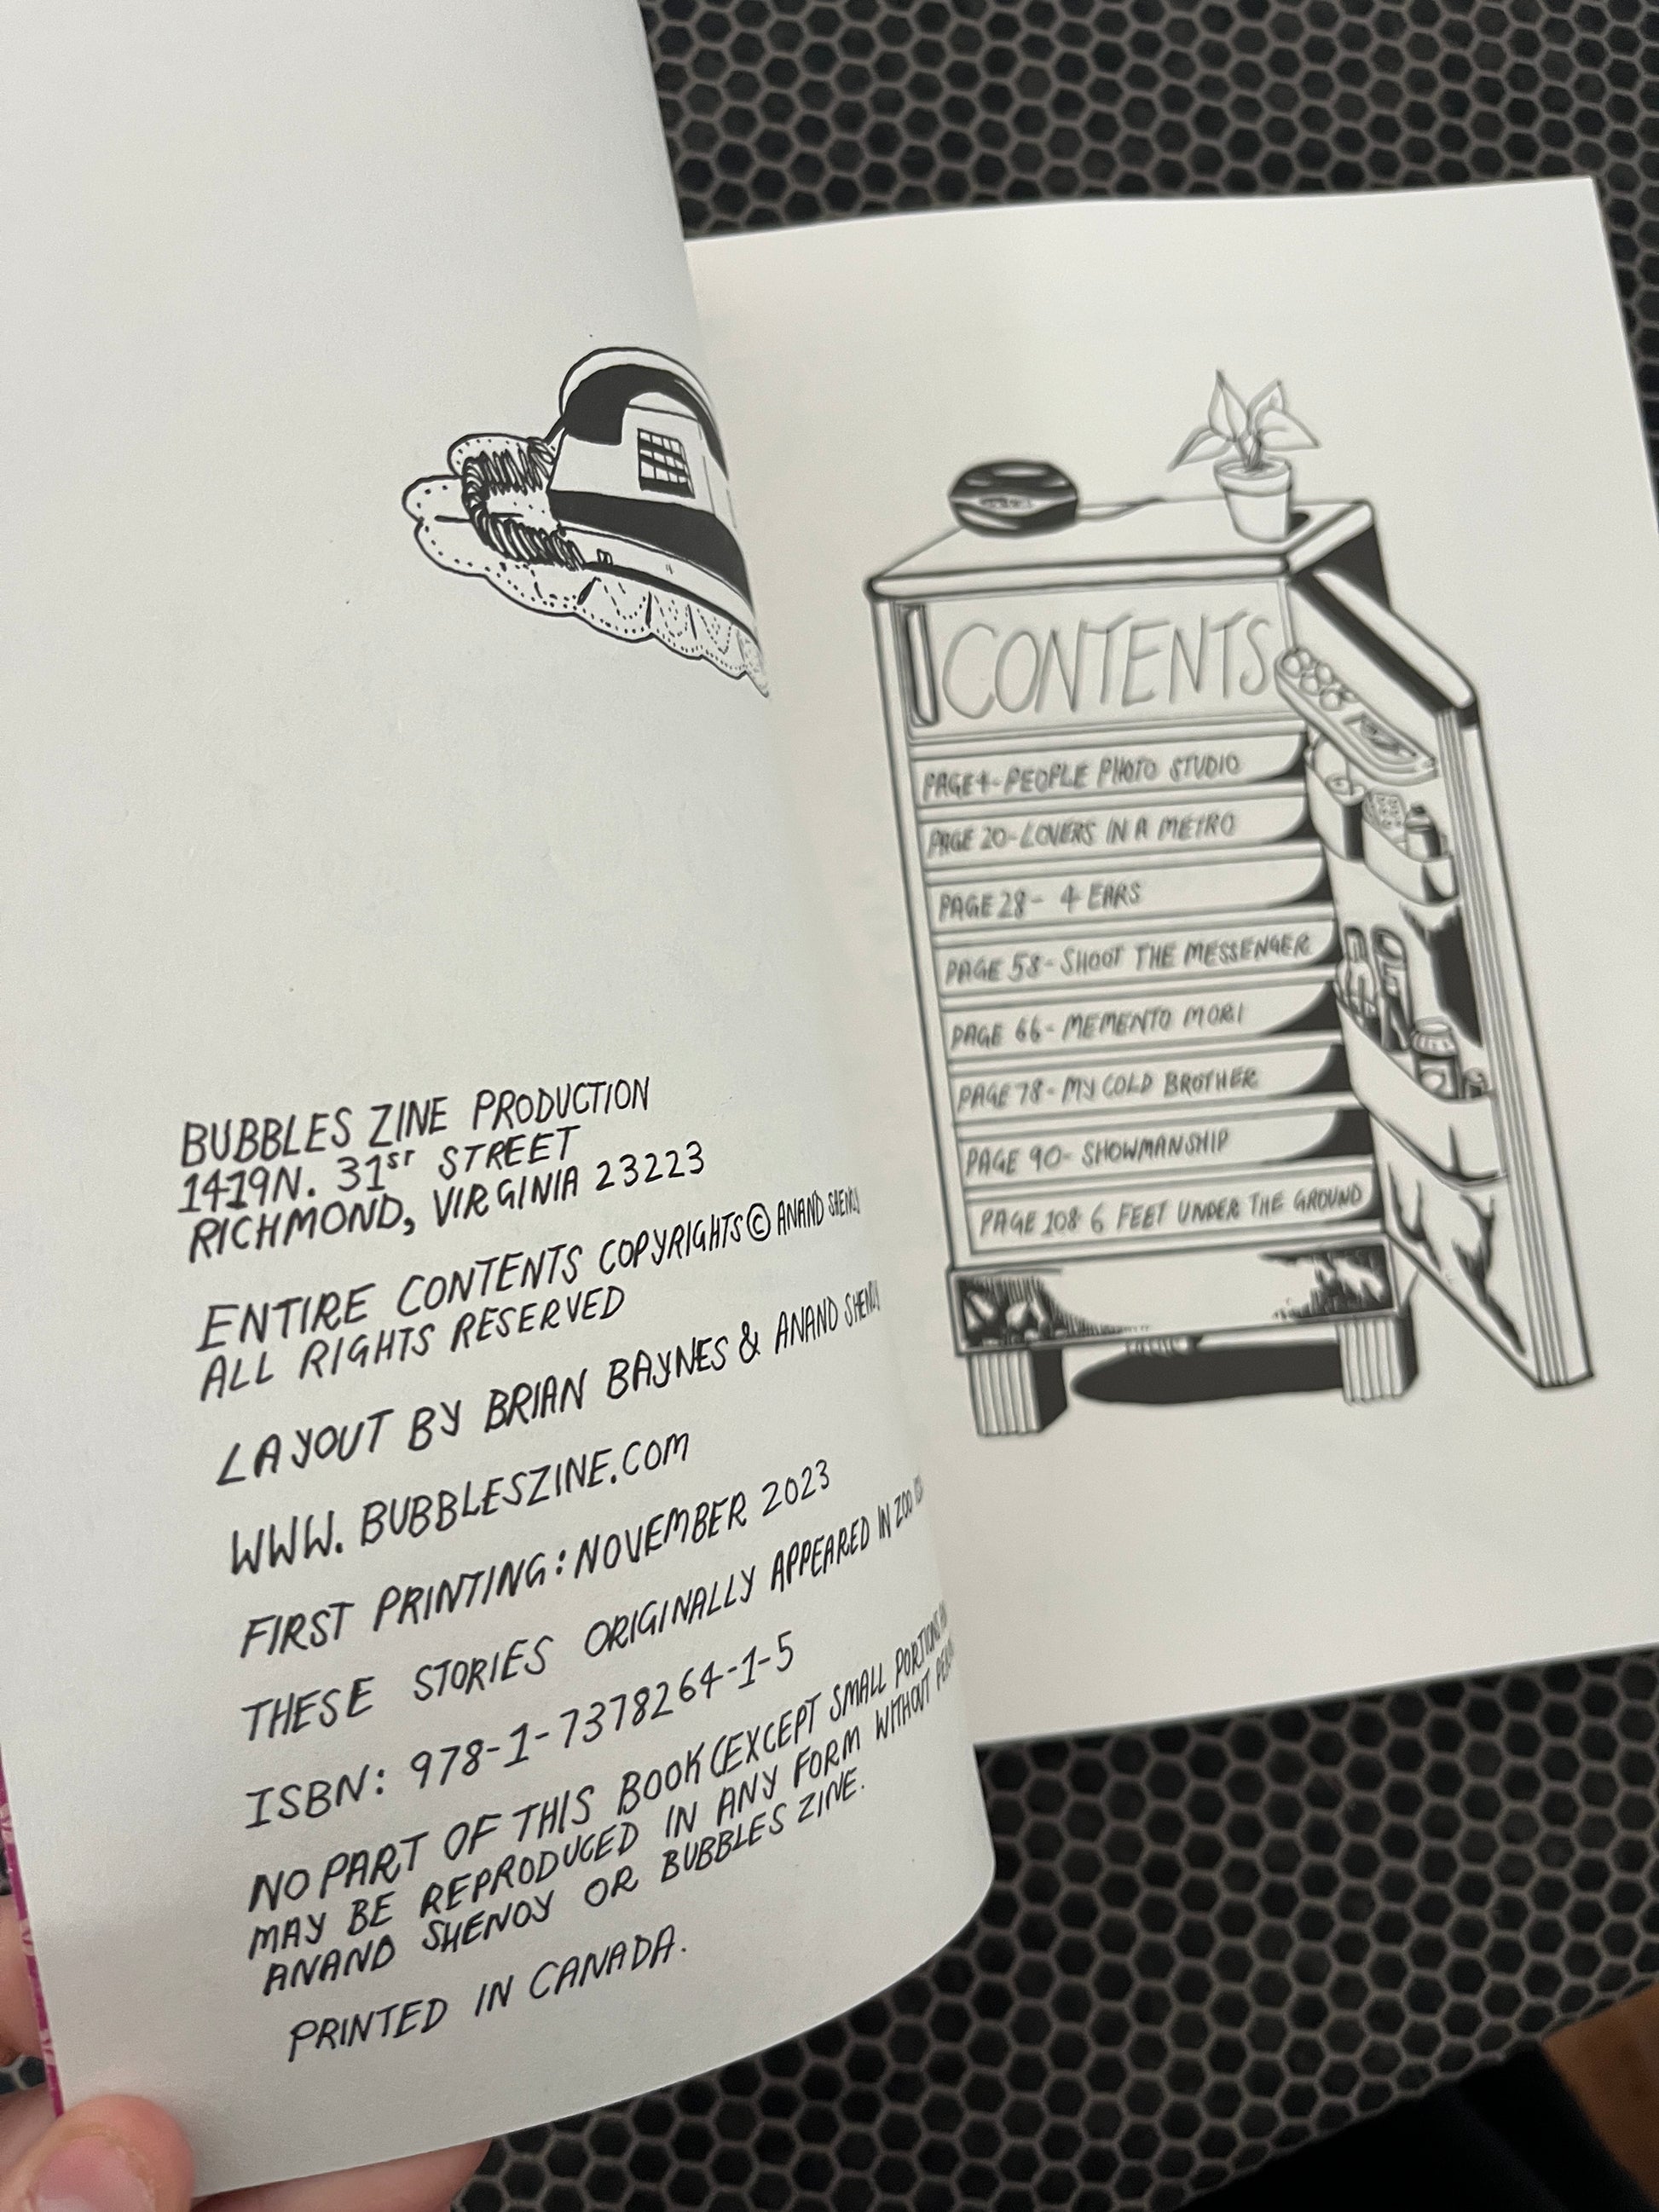 BUBBLES ZINE PRODUCTION
1419 N. 31ST STREET
RICHMOND, VIRGINIA 23223
ENTIRE CONTENTS COPYRIGHTS © ANAND SHENOY
ALL RIGHTS RESERVED
LAYOUT BY BRIAN BAYNES & ANAND SHENOY
WWW. BUBBLESZINE.COM
FIRST PRINTING: NOVEMBER 2023
THESE STORIES ORIGINALLY APPEARED IN ZOO
ISBN: 978-1-7378264-1-5
NO PART OF THIS BOOK (EXCEPT SMALL PORTIONS
MAY BE REPRODUCED IN ANY FORM WITHOUT
ANAND SHENOY OR BUBBLES ZINE.
PRINTED IN CANADA.
CONTENTS
PAGE 4- PEOPLE PHOTO STUDIO
PAGE 20- LOVERS IN A METRO
PAGE 28- 4 EARS
PAGE 58- SHOOT THE MESSENGER
PAGE 66- MEMENTO MORI
PAGE 78- MY COLD BROTHER
PAGE 90- SHOWMANSHIP
PAGE 108 6 FEET UNDER THE GROUND